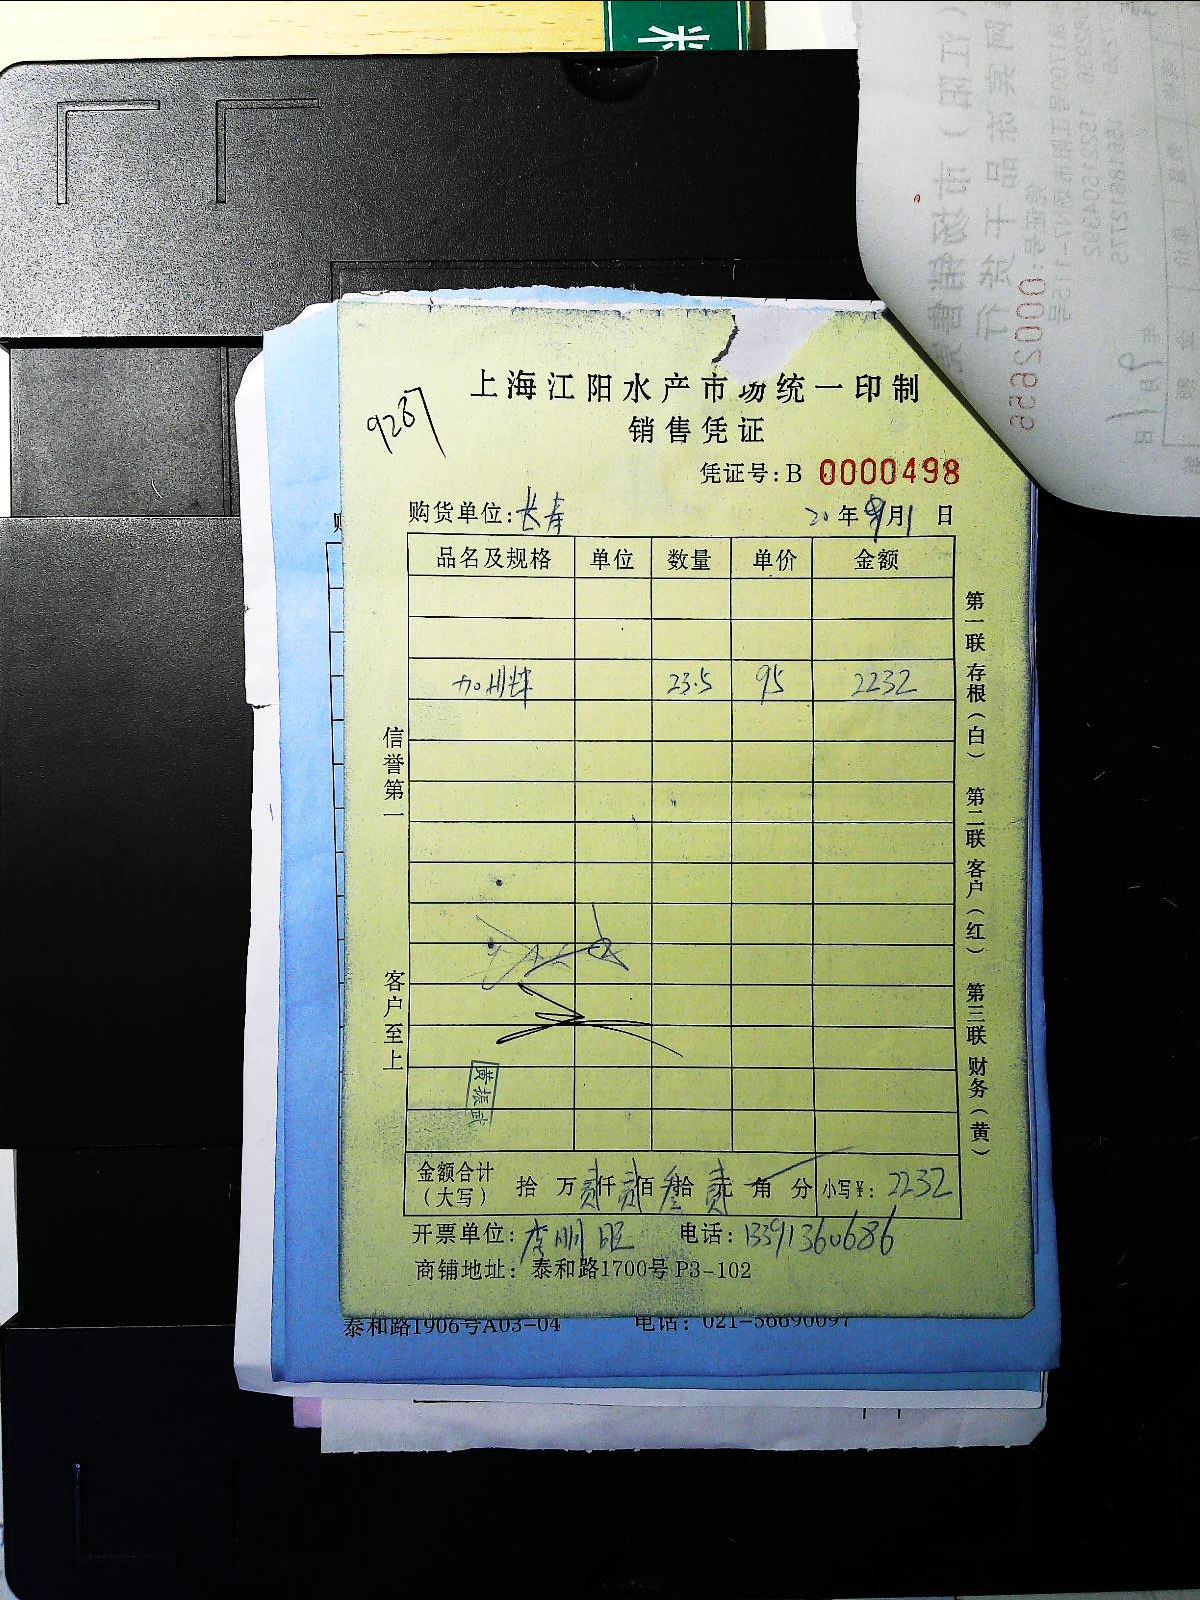 米
0002656
上海江阳水产市场统一印制
9287
销售凭证
凭证号:B 0000498
购货单位:长寿 20年9月1日
品名及规格 单位 数量 单价 金额
23.5 95 2232
信誉第一
客户至上
第一联 存根(白) 第二联 客户(红) 第三联 财务(黄)
黄振武
金额合计(大写) 拾 万贰仟贰佰叁拾贰元 角 分 小写¥: 2232
开票单位:李明旺 电话:13391360686
商铺地址: 泰和路1700号P3-102
泰和路1906号A03-04 电话: 021-56690097